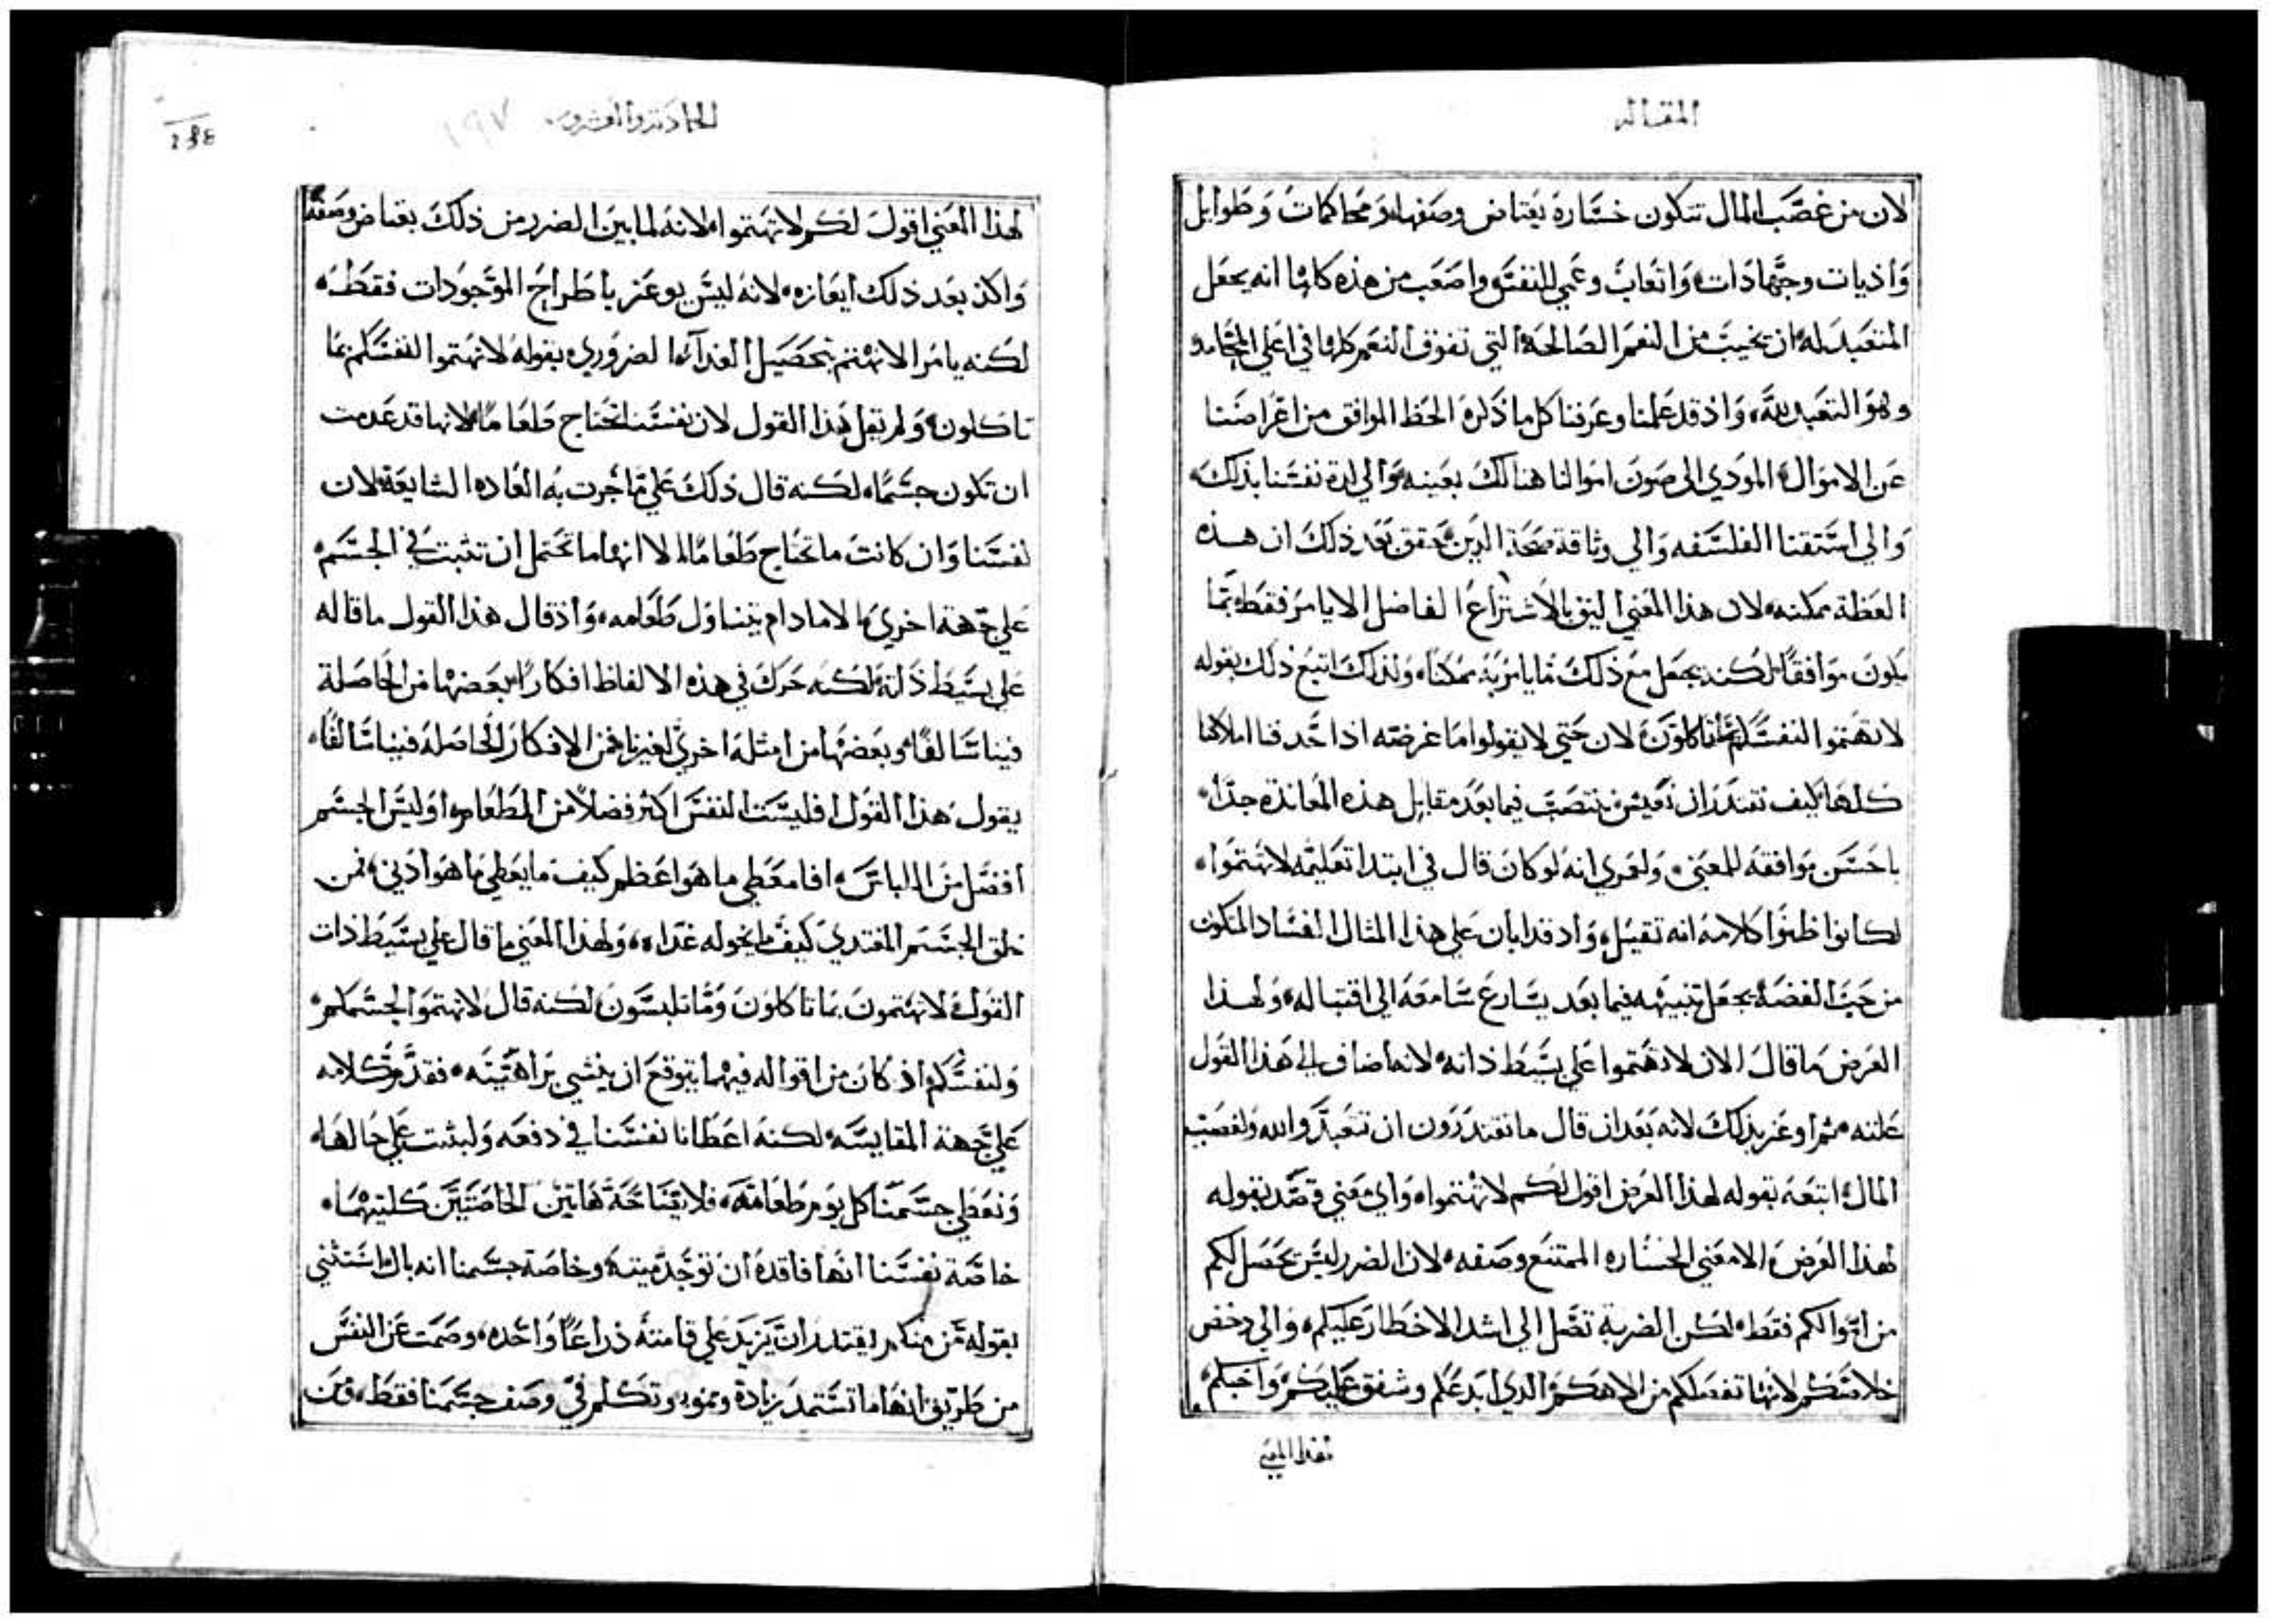 المقاله
لان من غصب المال تتكون خسارة يعتاض وصفها ومحاكمات وطوايل
واذيات وجهادات واتعاب وعمي للنفس واصعب من هذه كلها انه يجعل
المتعبد له ان يخيب من النعم الصالحه التي تفوق النعم كلها في اعلي
وهو التعبد لله واذ قد علمنا وعرفنا كل ما ذكره الحظ الموافق من اعراضنا
عن الاموال المودي الى صون اموالنا هنالك بعينه والي لذة نفسنا بذلك
والي استقنا الفلسفه والي وثاقة صحة الدين حقق بعد ذلك ان هذه
العظة ممكنه لان هذا المعني اليق بالاشتراع الفاضل الا يامر فقط بما
يكون موافقا لكنه يجعل مع ذلك ما يامر به ممكنا ولذلك اتبع ذلك بقوله
لا تهتموا لنفسكم بما تاكلون لان حتي لا يقولوا ما غرضه اذا حدفنا املاكنا
كلها كيف نقتدر ان نعيش ينتصب فيما بعد مقابل هذه المعاندة جدا
باحسن موافقه للمعني ولعمري انه لو كان قال في ابتدا تعليمه لا تهتموا
لكانوا ظنوا كلامه انه تقيل واذ قد ابان علي هذا المثال الفساد المتكون
من حب الفضه يجعل تنبيهه فيما بعد يسارع سامعه الي اقتباله ولهذا
الغرض ما قال الان لا تهتموا علي بسيط ذاته لانه اضاف الي هذا القول
علته ثم اوعز بذلك لانه بعد ان قال ما تقتدرون ان تتعبدوا لله ولغصب
المال اتبعه بقوله لهذا الغرض اقول لكم لا تهتموا واي معني قصد بقوله
لهذا الغرض الا معني الخساره الممتنع وصفه لان الضرر ليس يحصل لكم
من اموالكم فقط لكن الضربة تصل الي اشد الاخطار عليكم والي دحض
خلاصكم لانها تفصلكم من الاهكم الذي ابدعكم وشفق عليكم واحبكم
لهذا المعني
الحاديه والعشرون ١٩٧
لهذا المعني اقول لكم لا تهتموا لانه لما بين الضرر من ذلك يعتاض وصفه
واكد بعد ذلك ايعازه لانه ليس يوعز باطراح الموجودات فقط
لكنه يامر الا نهتم بتحصيل الغداء الضروري بقوله لا تهتموا لنفسكم بما
تاكلون ولم يقل هذا القول لان نفسنا تحتاج طعاما لانها قد عدمت
ان تكون جسما لكنه قال ذلك علي ما جرت به العاده الشايعه لان
نفسنا وان كانت ما تحتاج طعاما الا انها ما تحتمل ان تثبت في الجسم
علي جهة اخري الا ما دام يتناول طعامه واذ قال هذا القول ما قاله
علي بسيط ذاته لكنه حرك في هذه الالفاظ افكارا بعضها من الحاصلة
فينا سالفا وبعضها من امثله اخري لغيرنا فمن الافكار الحاصله فينا سالفا
يقول هذا القول افليست النفس اكثر فضلا من المطعام اوليس الجسم
افضل من اللباس افا معطي ما هو اعظم كيف ما يعطي ما هو ادني فمن
خلق الجسم المغتدي كيف ما يخوله غداه ولهذا المعني ما قال علي بسيط ذات
القول لا تهتمون بما تاكلون وما تلبسون لكنه قال لا تهتموا لجسمكم
ولنفسكم اذ كان من اقواله فيهما يتوقع ان ينشي براهينه فقدم كلامه
علي جهة المقايسه لكنه اعطانا نفسنا في دفعه ولبثت علي حالها
ونعطي جسمنا كل يوم طعامه فلايضاحه هاتين الخاصتين كلتيهما
خاصة نفسنا انها فاقده ان توجد ميته وخاصة جسمنا انه بال استثني
بقوله من منكم يقتدر ان يزيد علي قامته ذراعا واحده وصمت عن النفس
من طريق انها ما تستمد زيادة ونموه وتكلم في وصف جسمنا فقط فمن